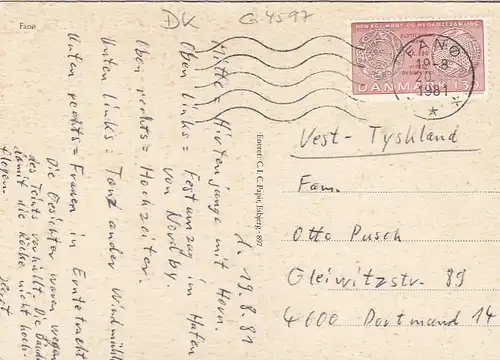 DK G 4597
Fanø
DEN KGL. MØNT OG MEDAILLESAMLING
DANMARK
FANØ
19-8
20
1981
d. 19.8.81
Mitte = Hirtenjunge mit Horn.
Oben links = Festumzug im Hafen
von Nordby
Oben rechts = Hochzeiter.
Unten links: Tanz an der Windmühle
Unten rechts = Frauen in Erntetracht
Die Gesichter waren wegen
des Teints verhüllt. Die Bänder
damit die Röcke nicht hoch-
fliegen.
Eneret: C. I. C. Papir, Esbjerg · 897
Vest-Tyskland
Fam.
Otto Pusch
Gleiwitzstr. 89
4600 Dortmund 14